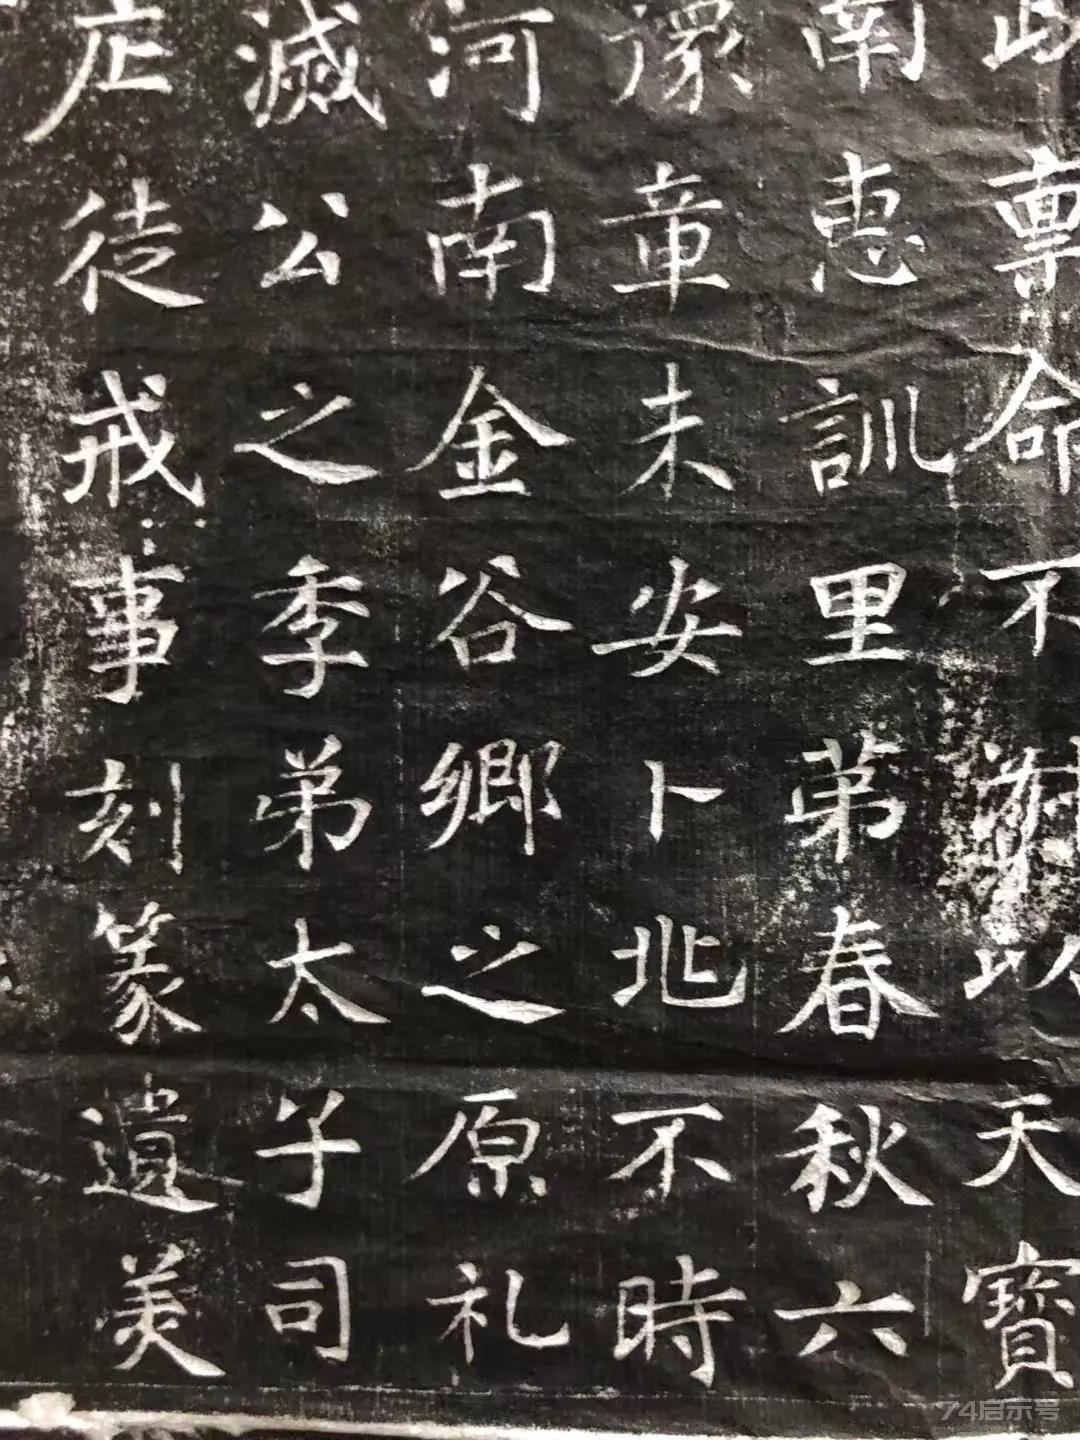 禀命不天寶
南惠訓里苐春秋六
豫章未安卜兆不時
河南金谷鄉之原礼
滅公之季弟太子司
庀徒戒事刻篆遺美
74启示号